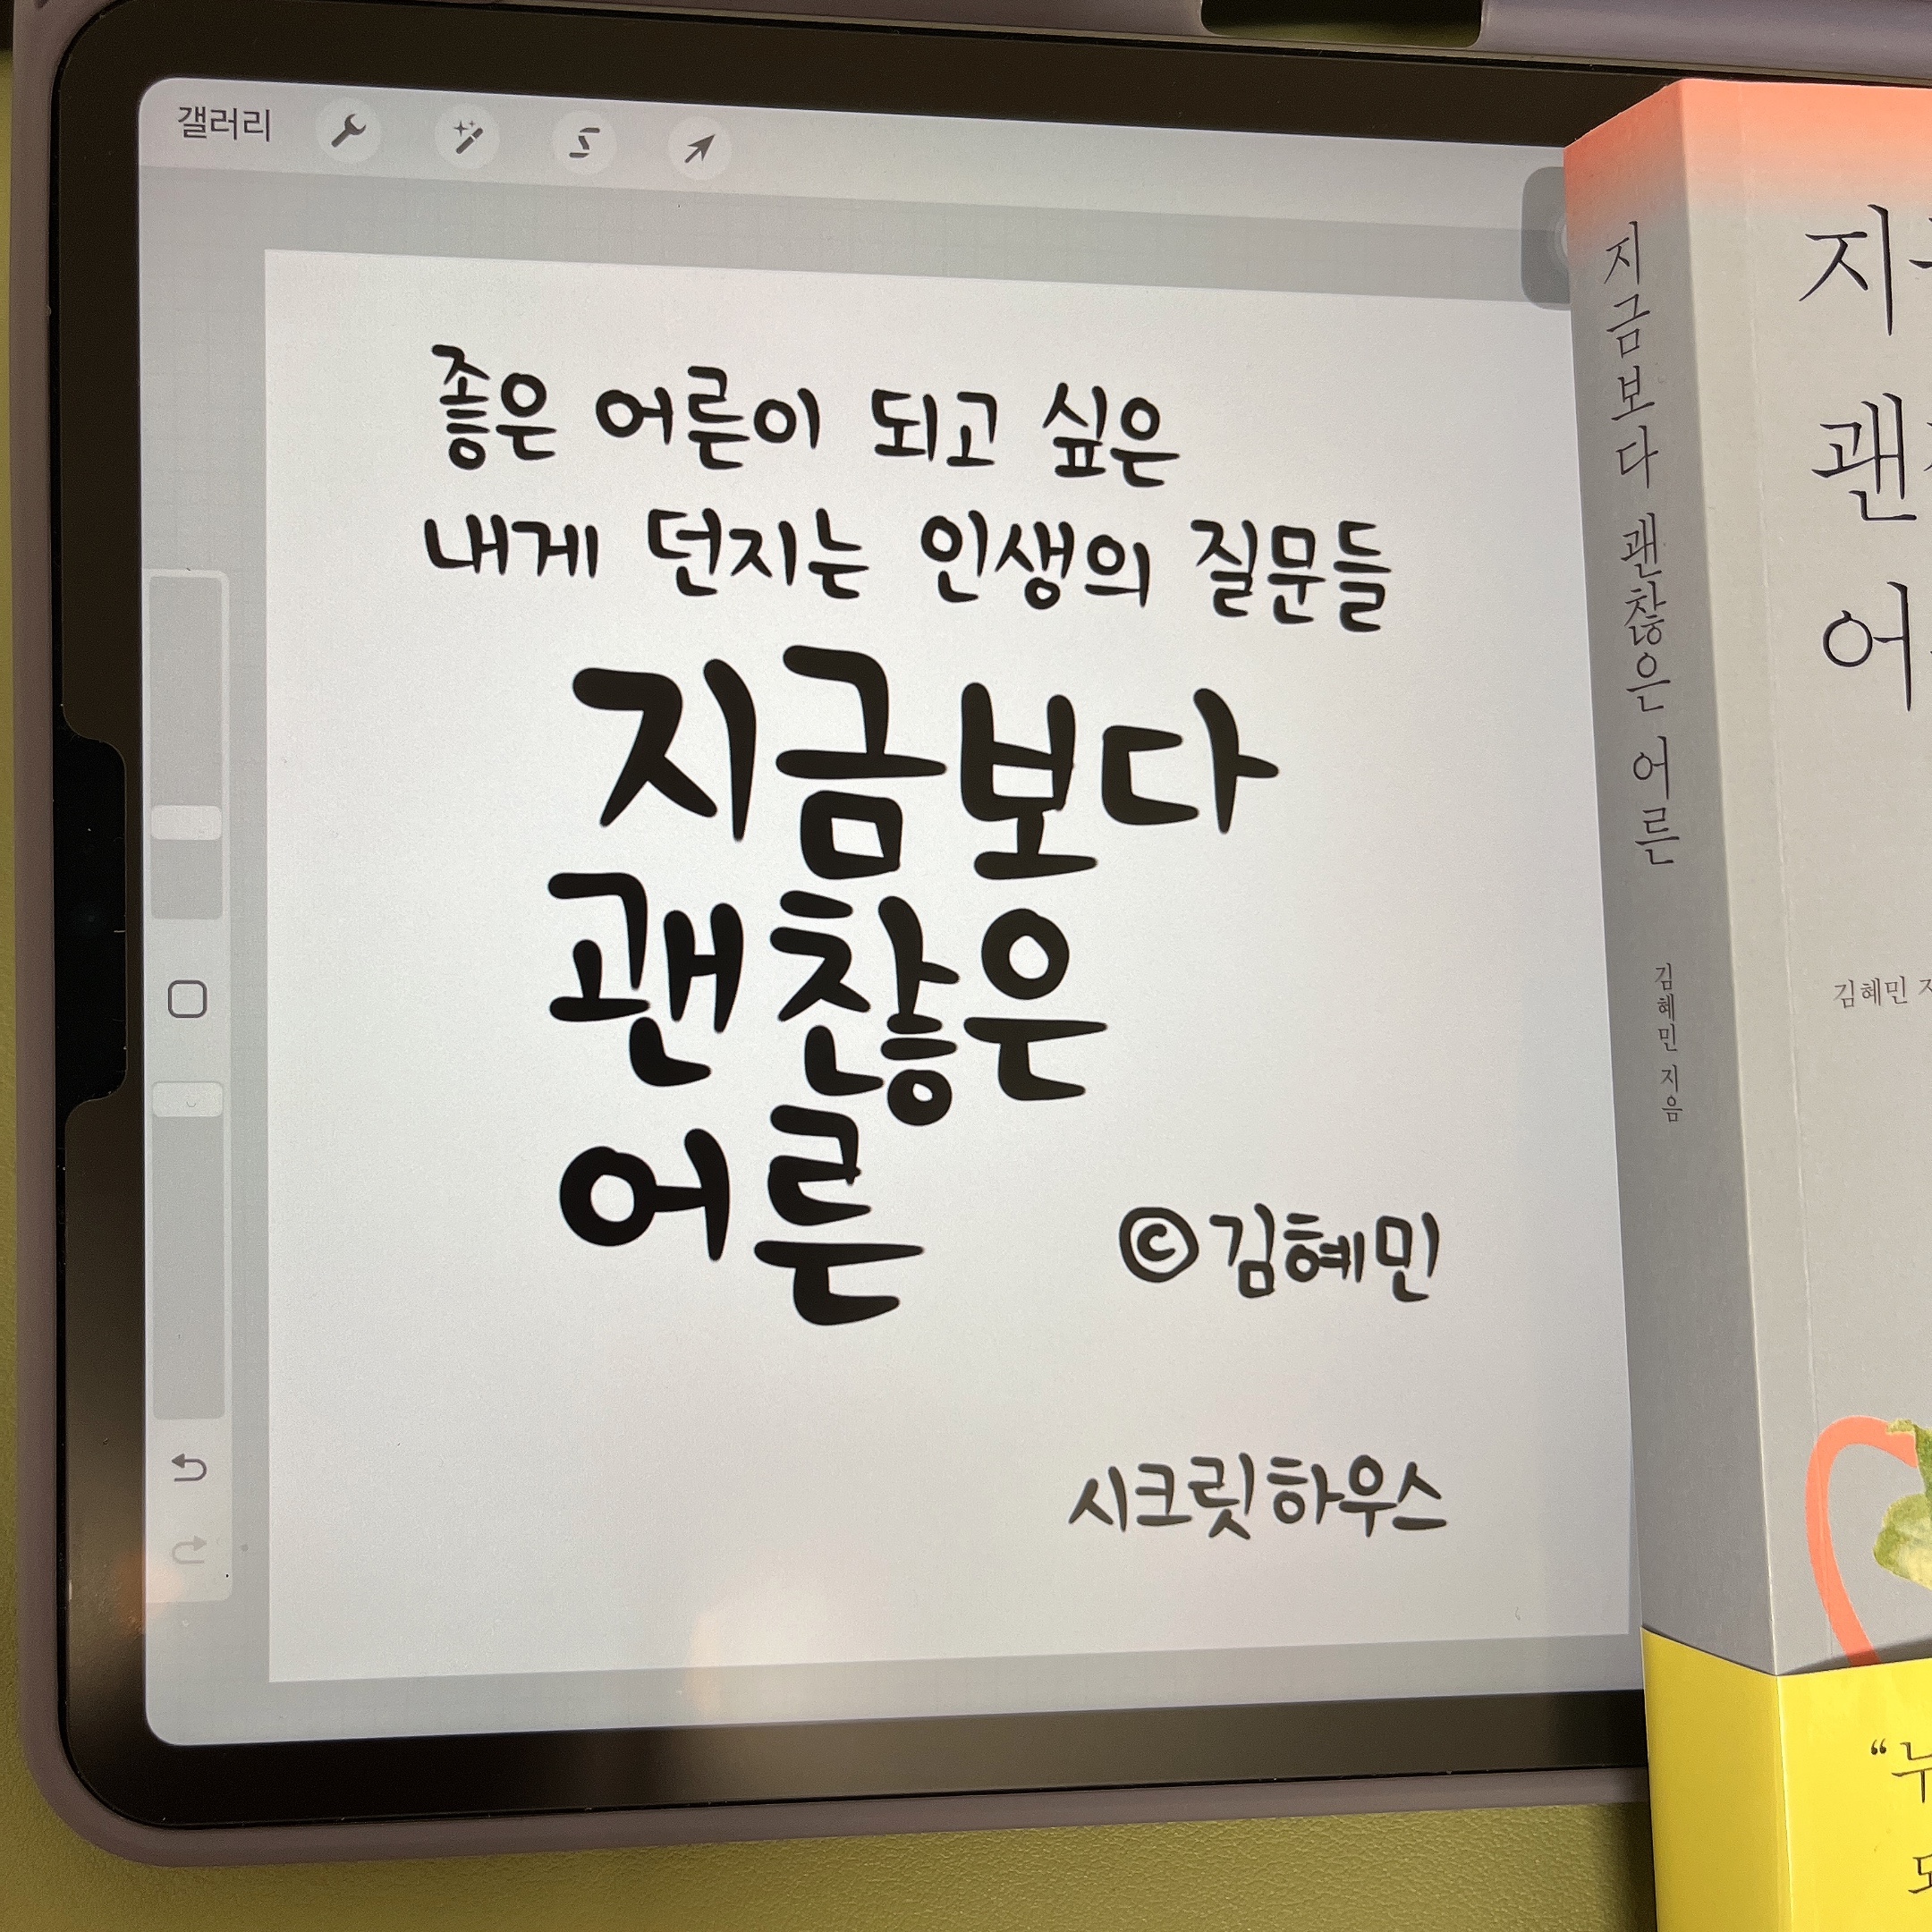 갤러리
좋은 어른이 되고 싶은
내게 던지는 인생의 질문들
지금보다
괜찮은
어른
©김혜민
시크릿하우스
지금보다 괜찮은 어른
김혜민 지음
지
괜
어
김혜민 지
“누
되